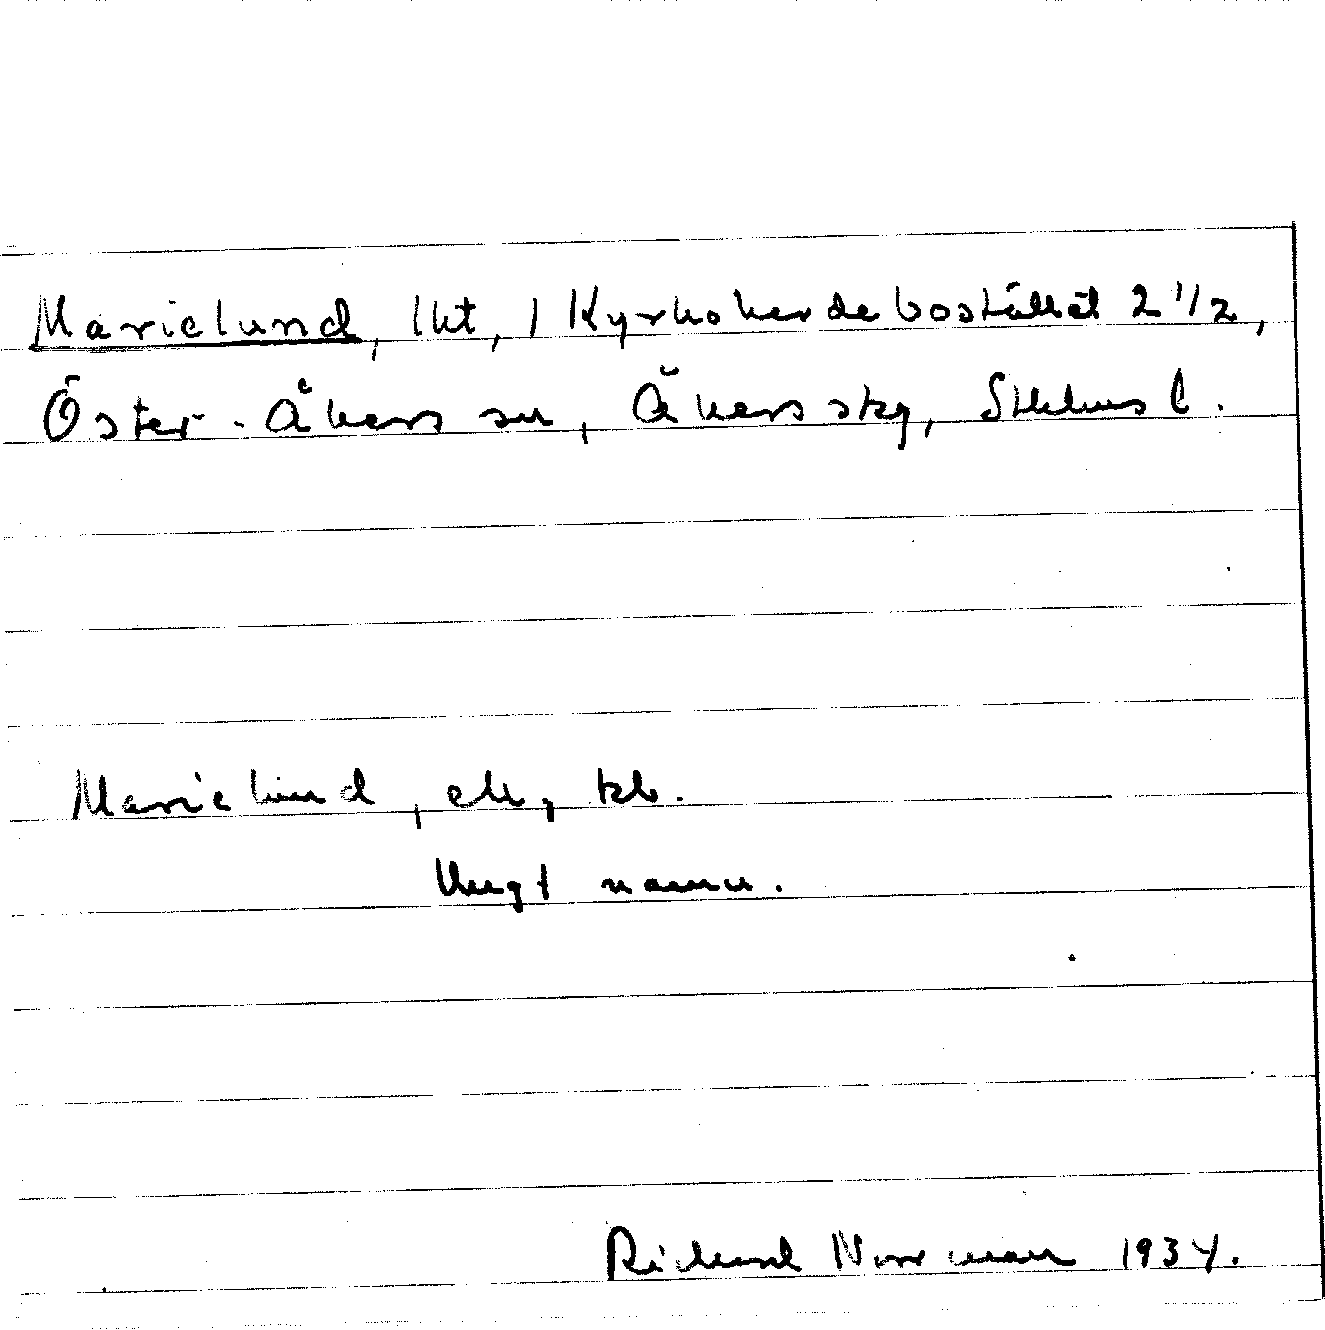 Marielund, lht, 1 Kyrkoherdebostället 2 1/2,
Öster-Åkers sn, Åkers skg, Sthlms l.
Marielund, elr, tb.
Ungt namn.
Richard Norrman 1934.